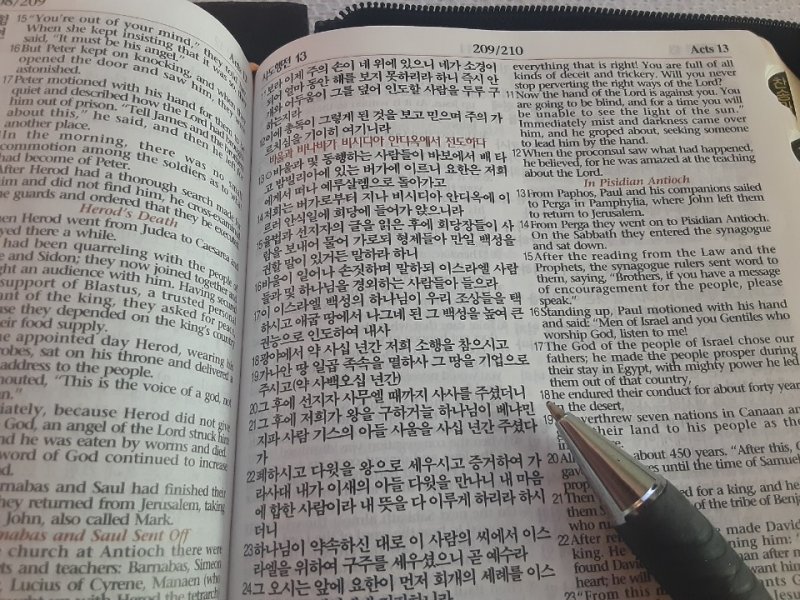 08/209
15 "You're out of your mind," they
When she kept insisting that it was so,
said, "It must be his angel."
16 But Peter kept on knocking, and when
opened the door and saw him, they
astonished.
17 Peter motioned with his hand for them
quiet and described how the Lord had
him out of prison. "Tell James and the
about this," he said, and then he
another place.
In the morning, there was no small
commotion among the soldiers as to
had become of Peter.
After Herod had a thorough search made
him and did not find him, he cross-examined
the guards and ordered that they be executed
Herod's Death
Then Herod went from Judea to Caesarea and
stayed there a while.
had been quarreling with the people of
and Sidon; they now joined together
ght an audience with him. Having secured
support of Blastus, a trusted personal
ant of the king, they asked for peace,
se they depended on the king's country
heir food supply.
he appointed day Herod, wearing his
robes, sat on his throne and delivered a
address to the people.
houted, "This is the voice of a god, not
n."
iately, because Herod did not give
God, an angel of the Lord struck him
nd he was eaten by worms and died.
word of God continued to increase
d.
rnabas and Saul had finished their
they returned from Jerusalem, taking
John, also called Mark.
nabas and Saul Sent Off
e church at Antioch there were
ts and teachers: Barnabas, Simeon
, Lucius of Cyrene, Manaen (who
ught up with Herod the tetrarch
사도행전 13
209/210
보라 이제 주의 손이 네 위에 있으니 네가 소경이
되어 얼마 동안 해를 보지 못하리라 하니 즉시 안
개와 어두움이 그를 덮어 인도할 사람을 두루 구
하는지라
12 이에 총독이 그렇게 된 것을 보고 믿으며 주의 가
르치심을 기이히 여기니라
바울과 바나바가 비시디아 안디옥에서 전도하다
13 ○바울과 및 동행하는 사람들이 바보에서 배 타
고 밤빌리아에 있는 버가에 이르니 요한은 저희
에게서 떠나 예루살렘으로 돌아가고
14 저희는 버가로부터 지나 비시디아 안디옥에 이
르러 안식일에 회당에 들어가 앉으니라
15 율법과 선지자의 글을 읽은 후에 회당장들이 사
람을 보내어 물어 가로되 형제들아 만일 백성을
권할 말이 있거든 말하라 하니
16 바울이 일어나 손짓하며 말하되 이스라엘 사람
들과 및 하나님을 경외하는 사람들아 들으라
17 이 이스라엘 백성의 하나님이 우리 조상들을 택
하시고 애굽 땅에서 나그네 된 그 백성을 높여 큰
권능으로 인도하여 내사
18 광야에서 약 사십 년간 저희 소행을 참으시고
19 가나안 땅 일곱 족속을 멸하사 그 땅을 기업으로
주시고(약 사백오십 년간)
20 그 후에 선지자 사무엘 때까지 사사를 주셨더니
21 그 후에 저희가 왕을 구하거늘 하나님이 베냐민
지파 사람 기스의 아들 사울을 사십 년간 주셨다
가
22 폐하시고 다윗을 왕으로 세우시고 증거하여 가
라사대 내가 이새의 아들 다윗을 만나니 내 마음
에 합한 사람이라 내 뜻을 다 이루게 하리라 하시
더니
23 하나님이 약속하신 대로 이 사람의 씨에서 이스
라엘을 위하여 구주를 세우셨으니 곧 예수라
24 그 오시는 앞에 요한이 먼저 회개의 세례를 이스
Acts 13
everything that is right! You are full of all
kinds of deceit and trickery. Will you never
stop perverting the right ways of the Lord?
11 Now the hand of the Lord is against you. You
are going to be blind, and for a time you will
be unable to see the light of the sun."
Immediately mist and darkness came over
him, and he groped about, seeking someone
to lead him by the hand.
12 When the proconsul saw what had happened,
he believed, for he was amazed at the teaching
about the Lord.
In Pisidian Antioch
13 From Paphos, Paul and his companions sailed
to Perga in Pamphylia, where John left them
to return to Jerusalem.
14 From Perga they went on to Pisidian Antioch.
On the Sabbath they entered the synagogue
and sat down.
15 After the reading from the Law and the
Prophets, the synagogue rulers sent word to
them, saying, "Brothers, if you have a message
of encouragement for the people, please
speak."
16 Standing up, Paul motioned with his hand
and said: "Men of Israel and you Gentiles who
worship God, listen to me!
17 The God of the people of Israel chose our
fathers; he made the people prosper during
their stay in Egypt, with mighty power he led
them out of that country,
18 he endured their conduct for about forty year
in the desert,
19 overthrew seven nations in Canaan an
their land to his people as the
20 All about 450 years. "After this, G
gave es until the time of Samue
proph
21 Then ed for a king, and he
of the tribe of Benja
who ru
22 After re made David
king. He ning him: "
found David an after m
heart; he will
23 "From this